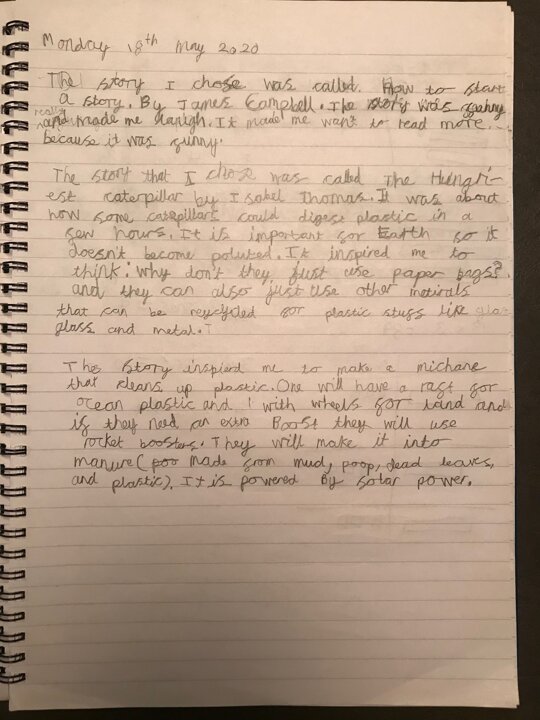 Monday 18th May 2020
The story I chose was called. How to start
a story. By James Campbell. The story was funny
really
and made me laugh. It made me want to read more
because it was funny.
The story that I chose was called The Hungri-
est caterpillar by Isabel Thomas. It was about
how some caterpillars could digest plastic in a
few hours. It is important for Earth so it
doesn't become poluted. It inspired me to
think: why don't they just use paper bags?
and they can also just use other metirals
that can be recycled for plastic stuff like glas
glass and metal.
This story inspired me to make a michane
that cleans up plastic. One will have a raft for
ocean plastic and 1 with wheels for land and
if they need an extra Boost they will use
rocket boosters. They will make it into
manure (poo made from mud, poop, dead leaves,
and plastic). It is powered by solar power.